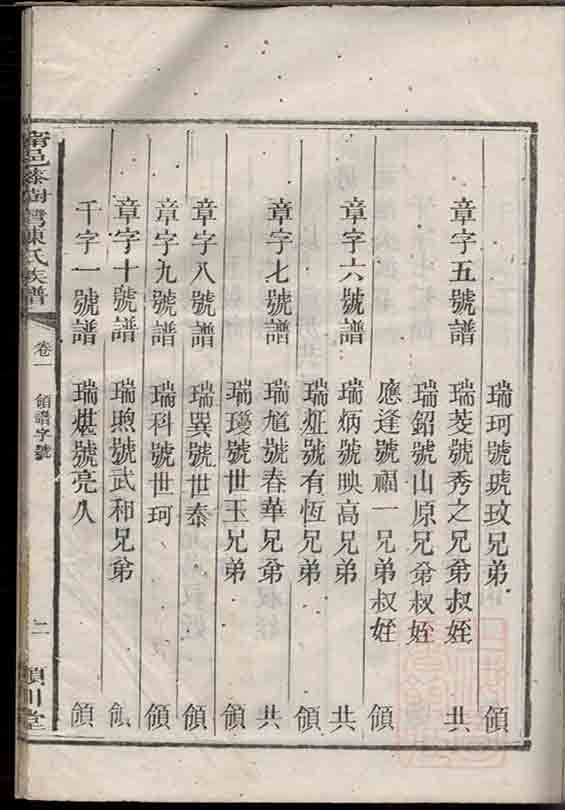 瑞珂號琥玟兄弟 領
章字五號譜 瑞菱號秀之兄弟叔姪 共
瑞鉊號山原兄弟叔姪
應逢號福一兄弟叔姪 領
章字六號譜 瑞炳號映高兄弟 共
瑞烶號有恆兄弟 領
章字七號譜 瑞馗號春華兄弟 共
瑞璦號世玉兄弟 領
章字八號譜 瑞巽號世泰 領
章字九號譜 瑞科號世珂 領
章字十號譜 瑞煦號武和兄弟 領
千字一號譜 瑞煁號亮人 領
邑樹灣陳氏族譜 卷一 領譜字號 二 潁川堂